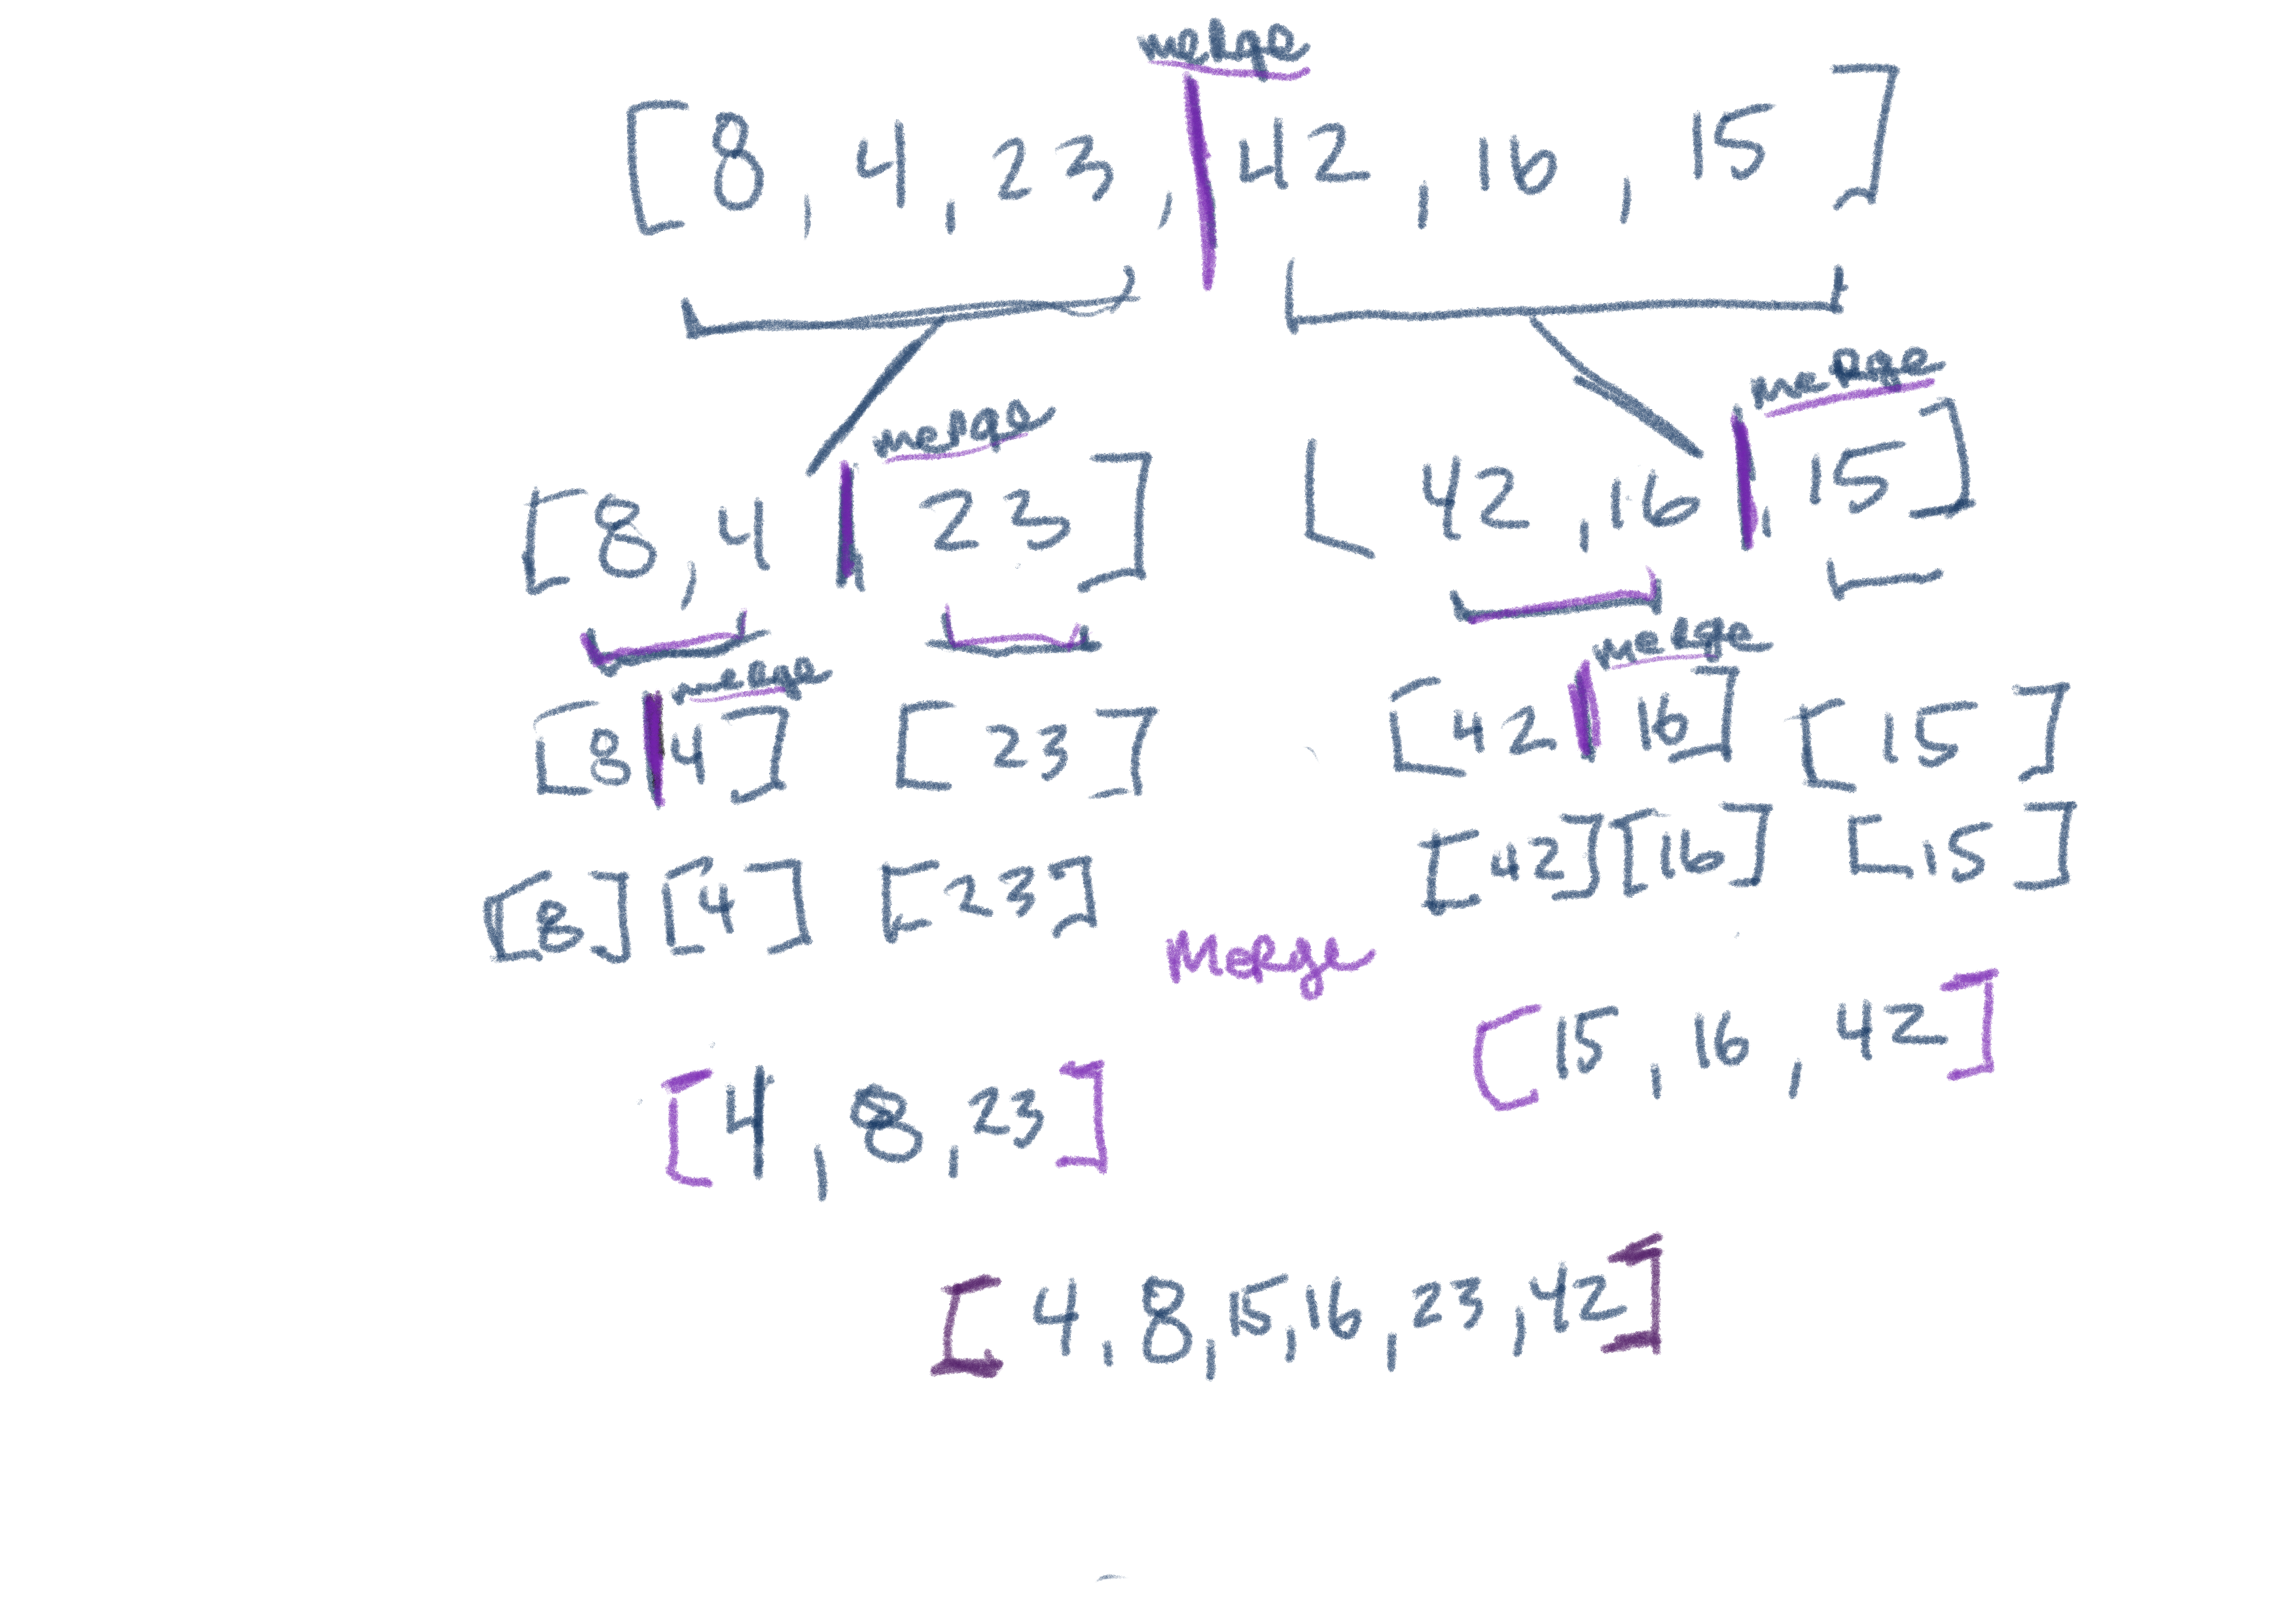 merge
[8, 4, 23, 42, 16, 15]
merge
merge
[8, 4, 23] [42, 16, 15]
merge
merge
[8 4] [23] [42 16] [15]
[8] [4] [23] [42] [16] [15]
Merge
[4, 8, 23] [15, 16, 42]
[4, 8, 15, 16, 23, 42]